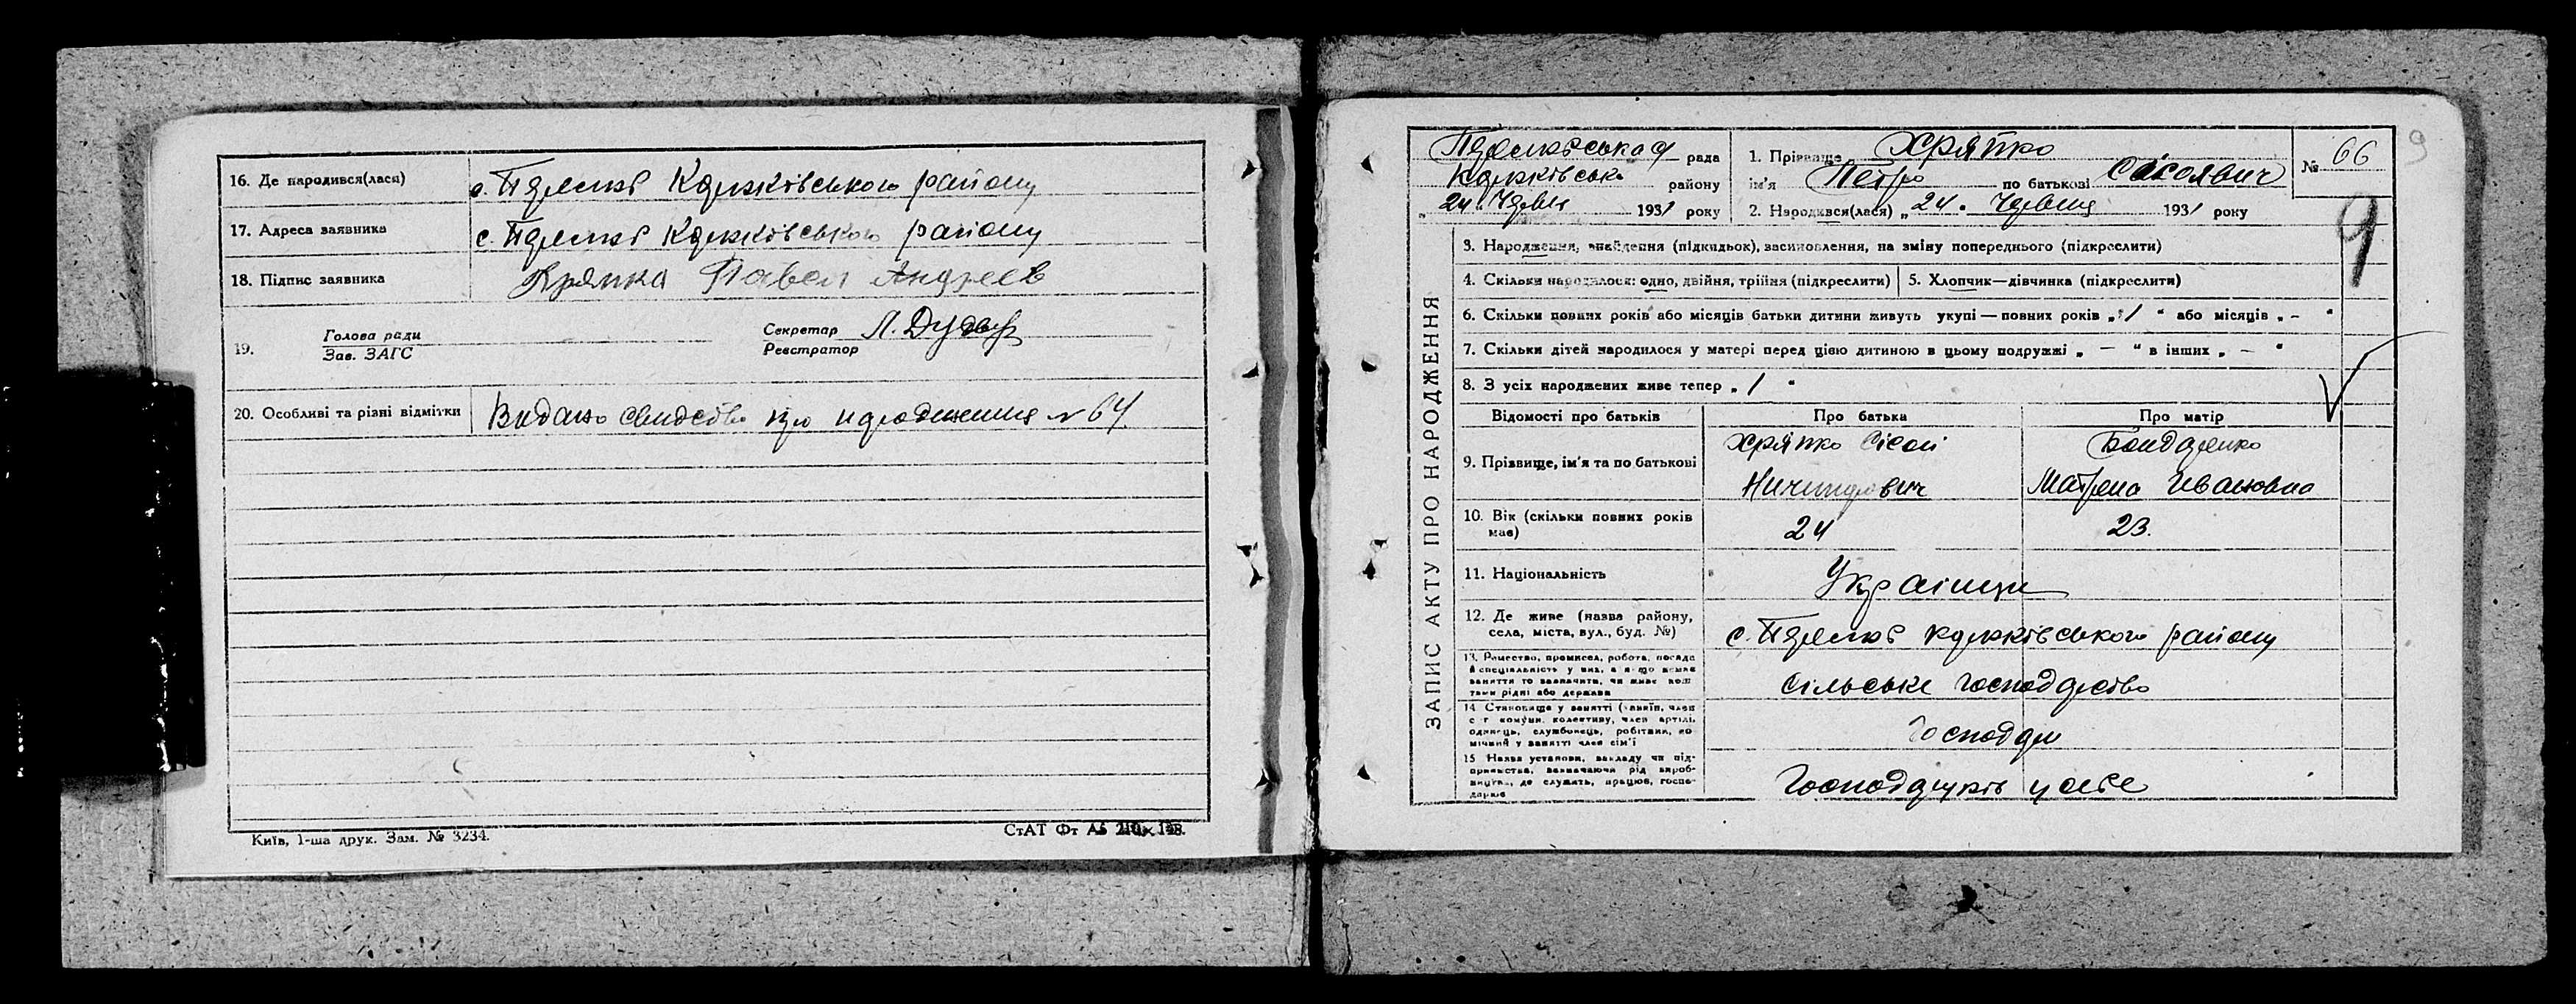 16. Де народився(лася)
с. Районі
17. Адреса заявника
с. району
18. Підпис заявника
Хряпка Павел Андреев
19.
Голова ради
Зав. ЗАГС
Секретар Л.
Реєстратор
20. Особливі та різні відмітки
Видано свидотство про народження № 64.
Київ, 1-ша друк. Зам. № 3234.
СтАТ Фт А5
рада
району
"24" Червн 1931 року
1. Прізвище Хряпко
ім'я Петро по батькові Сісоявич
2. Народився(лася) „24" Червня 1931 року
№ 66
9
9
ЗАПИС АКТУ ПРО НАРОДЖЕННЯ
3. Народження, знайдення (підкидьок), засиновлення, на зміну попереднього (підкреслити)
4. Скільки народилося: одно, двійня, трійня (підкреслити)
5. Хлопчик—дівчинка (підкреслити)
6. Скільки повних років або місяців батьки дитини живуть укупі — повних років „1" або місяців „–"
7. Скільки дітей народилося у матері перед цією дитиною в цьому подружжі „—" в інших „—"
8. З усіх народжених живе тепер „1"
Відомості про батьків
Про батька
Про матір
9. Прізвище, ім'я та по батькові
Хряпко Сісой
Ничипорович
Бондаренко
Матрена Ивановна
10. Вік (скільки повних років має)
24
23.
11. Національність
Українци
12. Де живе (назва району,
села, міста, вул., буд. №)
с. району
13. Ремество, промисел, робота, посада
й спеціяльність у них, а якщо немає
заняття то зазначити, чи живе кош-
тами рідні або держави
сільське господарство
14. Становище у занятті (хазяїн, член
с г комуни, колективу, член артілі,
одинець, службовець, робітник, по
мічний у занятті член сім'ї
Господар
15 Назва установи, закладу чи під-
приємства, зазначаючи рід вироб-
ництва, де служить, працює, госпо-
дарює
Господарують у себе